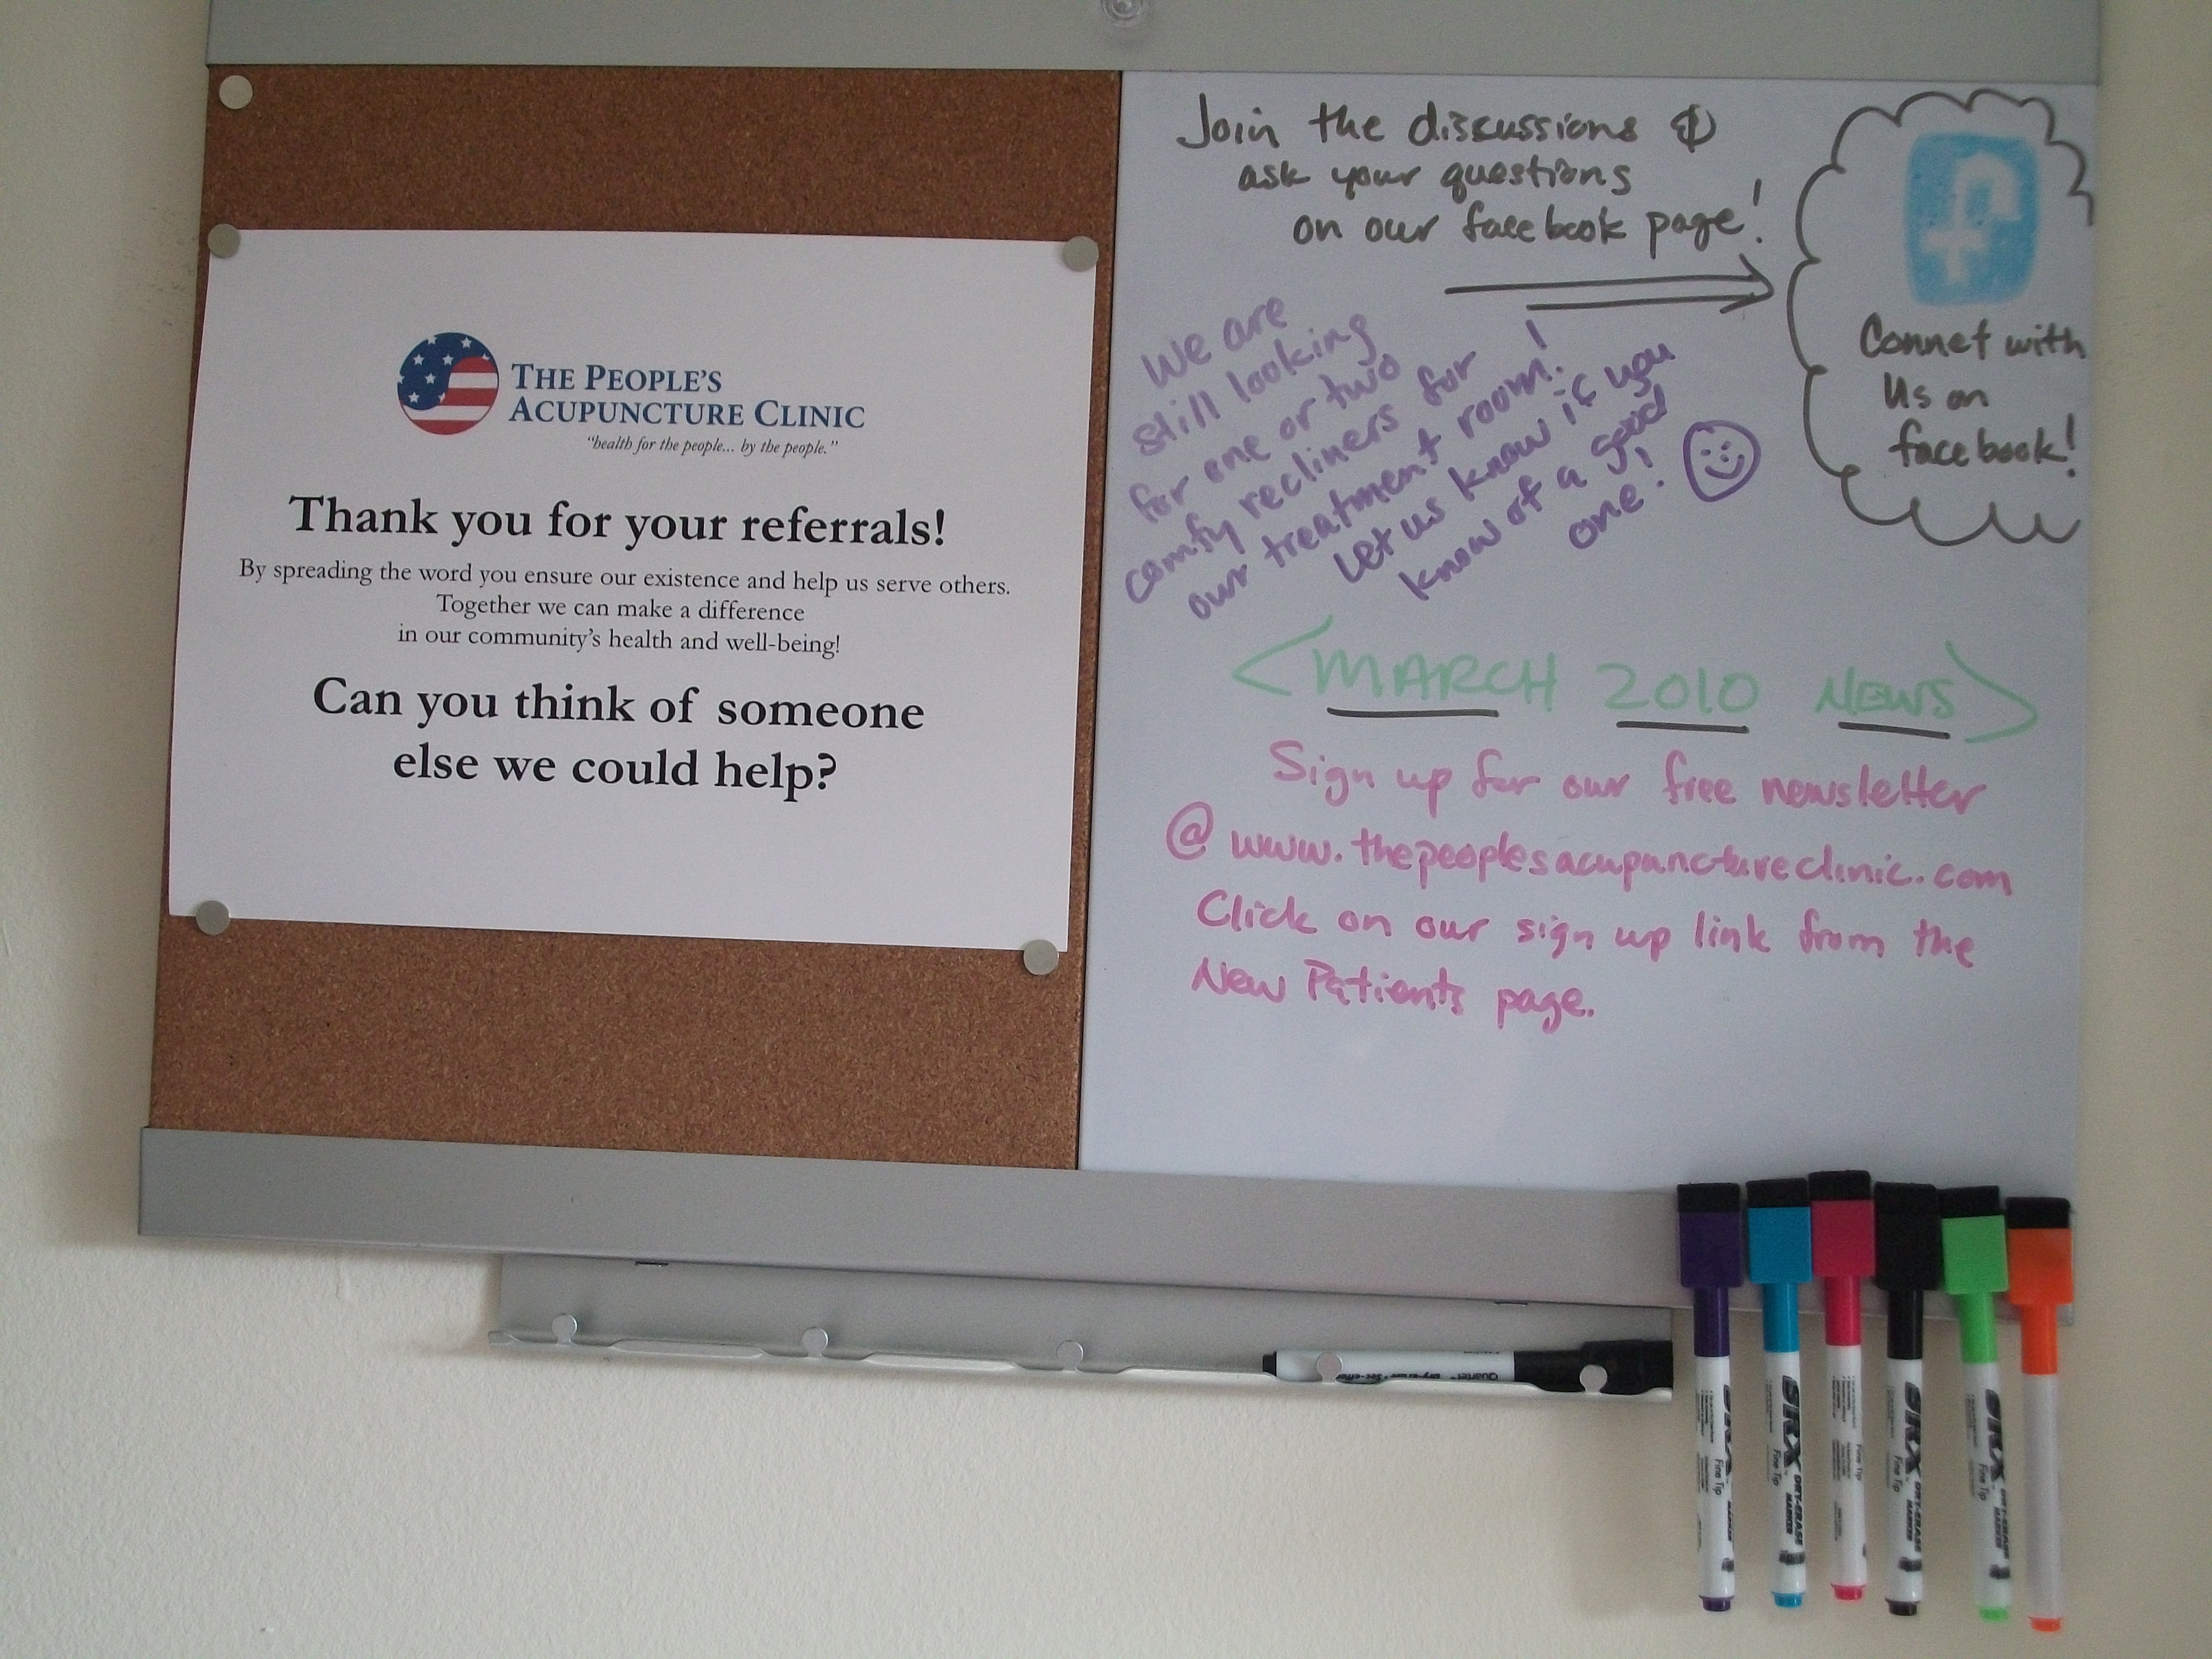 THE PEOPLE'S
ACUPUNCTURE CLINIC
"health for the people... by the people."
Thank you for your referrals!
By spreading the word you ensure our existence and help us serve others.
Together we can make a difference
in our community's health and well-being!
Can you think of someone
else we could help?
Join the discussions &
ask your questions
on our facebook page!
f
Connet with
us on
facebook!
We are
still looking
for one or two
comfy recliners for
our treatment room!
Let us know if you
know of a good
one!
<MARCH 2010 NEWS>
Sign up for our free newsletter
@ www.thepeoplesacupunctureclinic.com
Click on our sign up link from the
New Patients page.
Quartet
SRX Fine Tip
SRX DRY-ERASE MARKER Fine Tip
Fine Tip
SRX DRY-ERASE MARKER Fine Tip
SRX DRY-ERASE MARKER Fine Tip